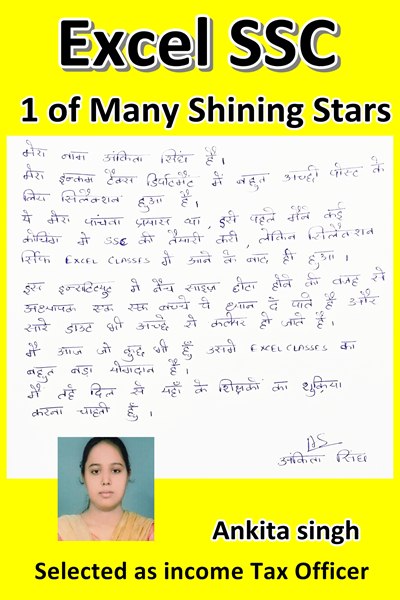 Excel SSC
1 of Many Shining Stars
मेरा नाम अंकिता सिंघ है।
मेरा इन्कम टैक्स डिर्पाटमेंट में बहुत अच्छी पोस्ट के
लिय सिलैक्शन हुआ है।
ये मेरा पांचवा प्रयास था, इसे पहले मैंने कई
कोचिंग में SSC की तैयारी करी, लेकिन सिलैक्शन
सिर्फ EXCEL CLASSES में आने के बाद ही हुआ।
इस इन्सटिट्यूट में बैच साइज़ छोटा होने की वजह से
अध्यापक एक एक बच्चे पे ध्यान दे पाते है और
सारे डाउट भी अच्छे से कलीयर हो जाते है।
मैं आज जो कुछ भी हूँ उसमे EXCEL CLASSES का
बहुत बड़ा योगदान है।
मैं तहे दिल से यहाँ के शिक्षकों का शुक्रिया
करना चाहती हूँ।
AS
अंकिता सिंघ
Ankita singh
Selected as income Tax Officer